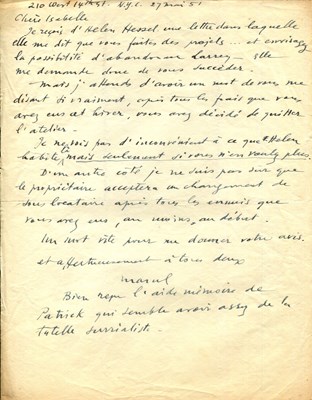 210 West 14th St. N.Y.C. 27 mai 51
Chère Isabelle
Je reçois d'Helen Hessel une lettre dans laquelle
elle me dit que vous faites des projets... et envisagez
la possibilité d'abandonner Larrey — Elle
me demande donc de vous succéder.
Mais j'attends d'avoir un mot de vous me
disant si vraiment, après tous les frais que vous
avez eus cet hiver, vous avez décidé de quitter
l'atelier.
Je ne vois pas d'inconvénient à ce que Helen
habite là mais seulement si vous n'en voulez plus.
D'un autre côté je ne suis pas sûr que
le propriétaire acceptera un changement de
sous locataire après tous les ennuis que
vous avez eus, au moins, au début.
Un mot vite pour me donner votre avis.
et affectueusement à tous deux
Marcel
Bien reçu l'aide mémoire de
Patrick qui semble avoir assez de la
tutelle surréaliste.